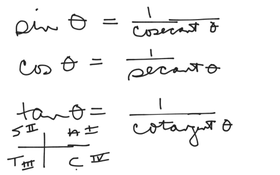 sin θ = 1 / cosecant θ
cos θ = 1 / secant θ
tan θ = 1 / cotangent θ
S II A I
T III C IV